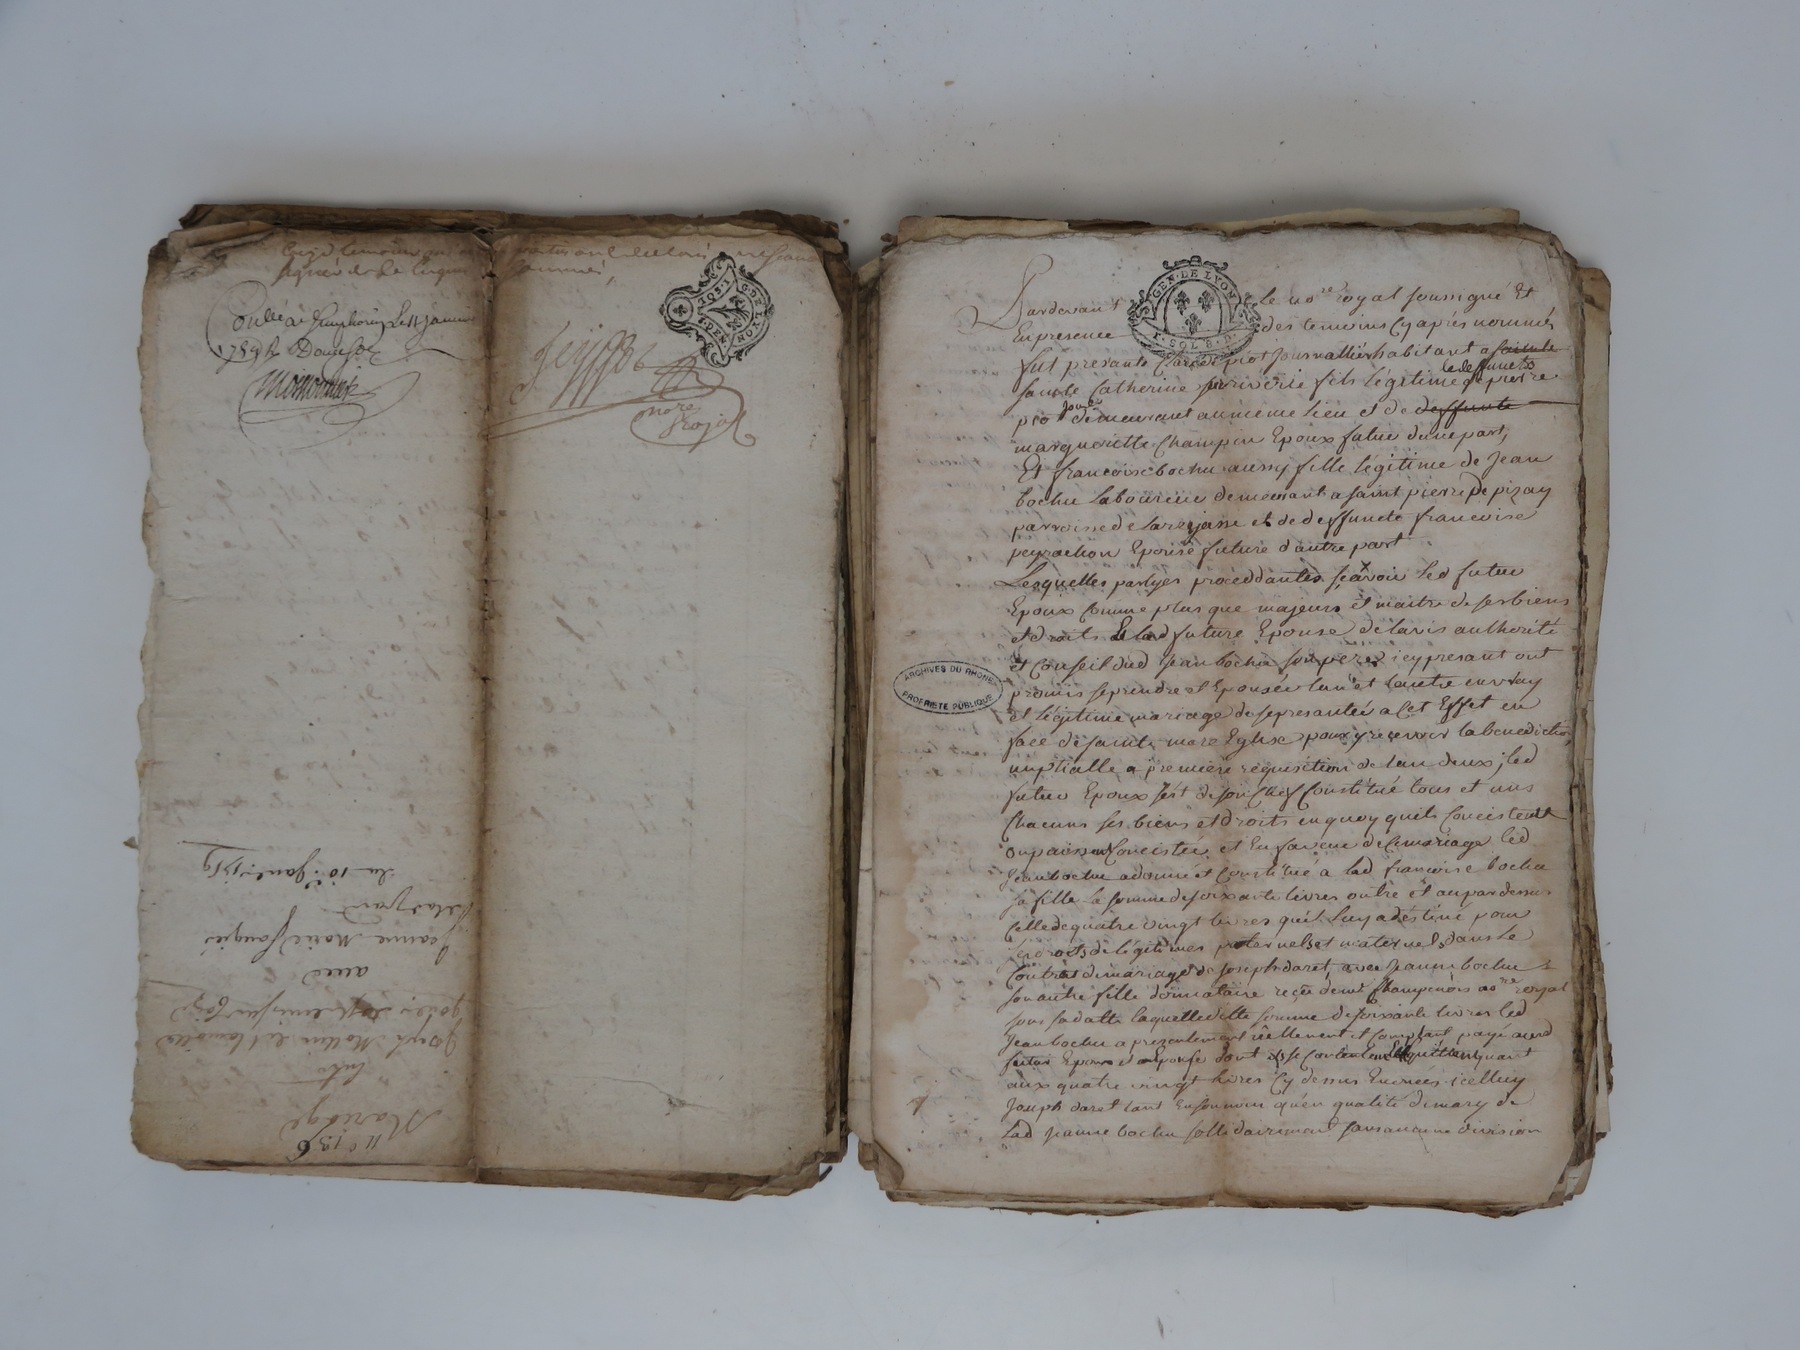 Controllé à St Symphorien Le 11 janvier
1759 R Douze sols
notre
Royal
du 10e Janv. 1759
Jeanne Marie
avec
Mariage
n° 136
GEN. DE LYON
I. SOL 8. D.
Pardevant Le nore royal soussigné Et
En presence des temoins Cy après nommés
fut presant piot Journallier habitant a sainte
Sainte Catherine sur riverie fils légitime de pierre
ledeffuncts
pio Jour demeurant au même lieu et de deffunte
margueritte Champin Epoux futur d'une part,
Et francoise bochu aussy fille légitime de Jean
bochu Laboureur demeurant a saint pierre De pizay
parroisse de Larajasse et de deffuncte francoise
peyrachon Epouse future d'autre part
Lesquelles partyes proceddantes sçavoir led futur
Epoux Comme plus que majeurs et maitre de ses biens
et droits Et lad future Epouse de lavis authorité
et Conseil dud Jean bochu son pere icy presant ont
promis se prendre et Epouser lun et lautre en vray
et légitime mariage de se presanter a Cet Effet en
face de sainte mere Eglise pour y recevoir la benediction
nuptialle a première réquisition de lun deux; led
futur Epoux sest de son Chef Constitué tous et uns
Chacuns ses biens et droits en quoy quils Concistent
ou puissent Concister, et En faveur de Ce mariage led
Jean bochu a donné et Constitué a lad francoise bochu
sa fille la somme de soixante livres outre et au par dessus
Celle de quatre vingt livres quil Luy a destiné pour
ses droits de légitimes paternels et maternels dans Le
Contrat de mariage de Joseph daret avec Jeanne bochu
son autre fille donnataire recu de me Champenois nore royal
sous sa datte laquelle ditte somme de soixante livres led
Jean bochu a presentement réellement et Comptant payé aux d
futur Epoux et Epouse dont il se Contentent quittent quant
aux quatre vingt livres Cy dessus Enonées icelluy
Joseph daret tant En son nom qu'en qualité de mary de
Lad Jeanne bochu sollidairement sans aucune division
ARCHIVES DU RHONE
PROPRIETE PUBLIQUE